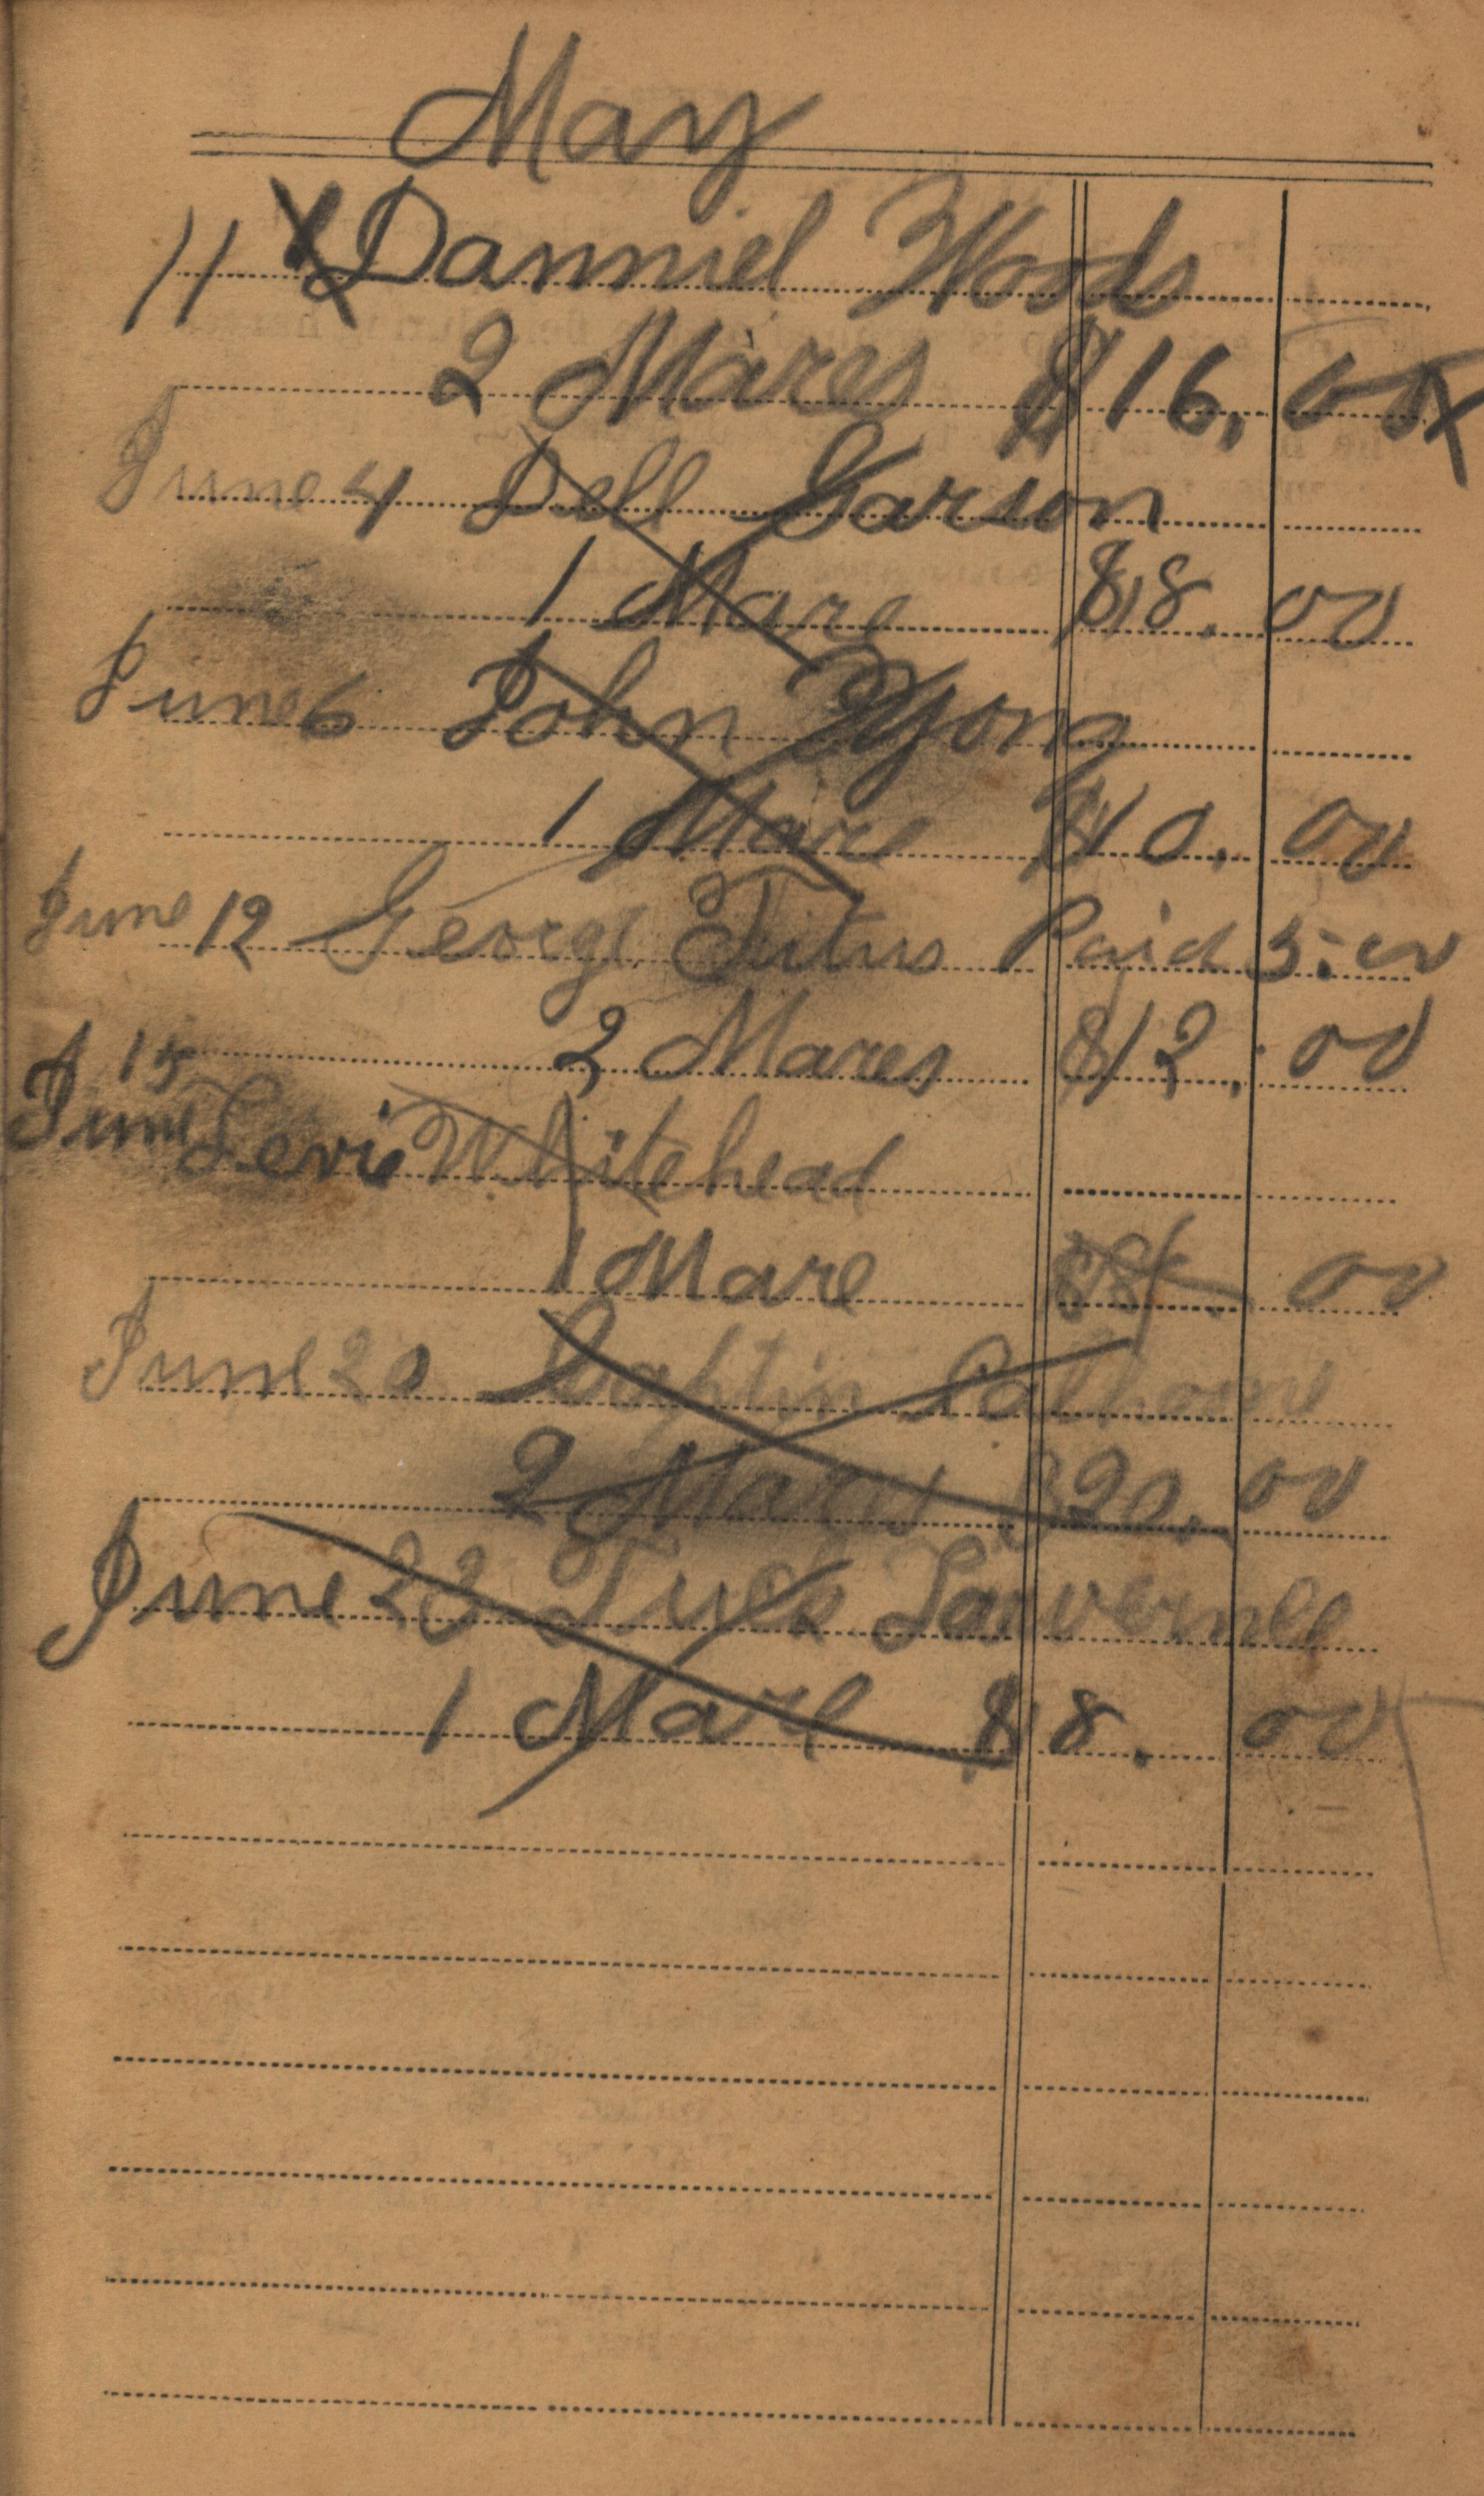 May
11 X Danniel Woods
2 Mares $16,00 X
June 4 Dell Garson
1 Mare $8.00
June 6 John Yong
1 Mare $10.00
June 12 George Titus Paid 5.00
2 Mares $12.00
June 15 Levie Whitehead
1 Mare $8.00
June 20 Captin Calhoune
2 Mares $20.00
June 22
1 Mare $8.00